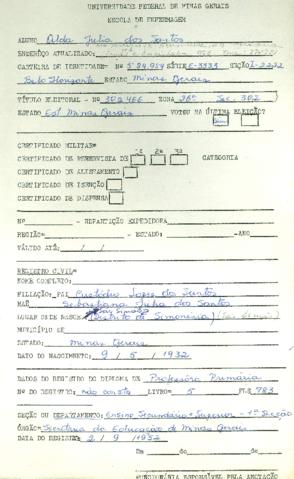 UNIVERSIDADE FEDERAL DE MINAS GERAIS
ESCOLA DE ENFERMAGEM
ALUNO Alda Julia dos Santos
ENDEREÇO ATUALIZADO:
CARTEIRA DE IDENTIDADE= Nº 584.954 SÉRIE E-3333 SEÇÃO I-2222
Belo Horizonte ESTADO Minas Gerais
TÍTULO ELEITORAL - Nº 302466 ZONA 38ª Sec. 302
ESTADO Est Minas Gerais VOTOU NA ÚLTIMA ELEIÇÃO?
CERTIFICADO MILITAR=
CERTIFICADO DE RESERVISTA DE 1ª 2ª 3ª CATEGORIA
CERTIFICADO DE ALISTAMENTO
CERTIFICADO DE ISENÇÃO
CERTIFICADO DE DISPENSA
Nº - REPARTIÇÃO EXPEDIDORA
REGIÃO= - ESTADO: -ANO
VÁLIDO ATÉ: / /
REGISTRO CIVIL=
NOME COMPLETO:
FILIAÇÃO: PAI Custódio Lopes dos Santos
MÃE Sebastiana Julia dos Santos
LOCAL DE NASC. Distrito de Simonésia)
MUNICÍPIO DE
ESTADO: Minas Gerais
DATA DO NASCIMENTO: 9 / 5 / 1932
DADOS DO REGISTRO DO DIPLOMA DE Professora Primária
Nº DO REGISTRO: não consta LIVRO= 5 FLS 783
SEÇÃO OU DEPARTAMENTO: Ensino Secundário e Superior - 1ª Secção
ÓRGÃO= Secretaria da Educação de Minas Gerais
DATA DO REGISTRO 2 / 9 / 1952
Em de de
FUNCIONÁRIO RESPONSÁVEL PELA ANOTAÇÃO